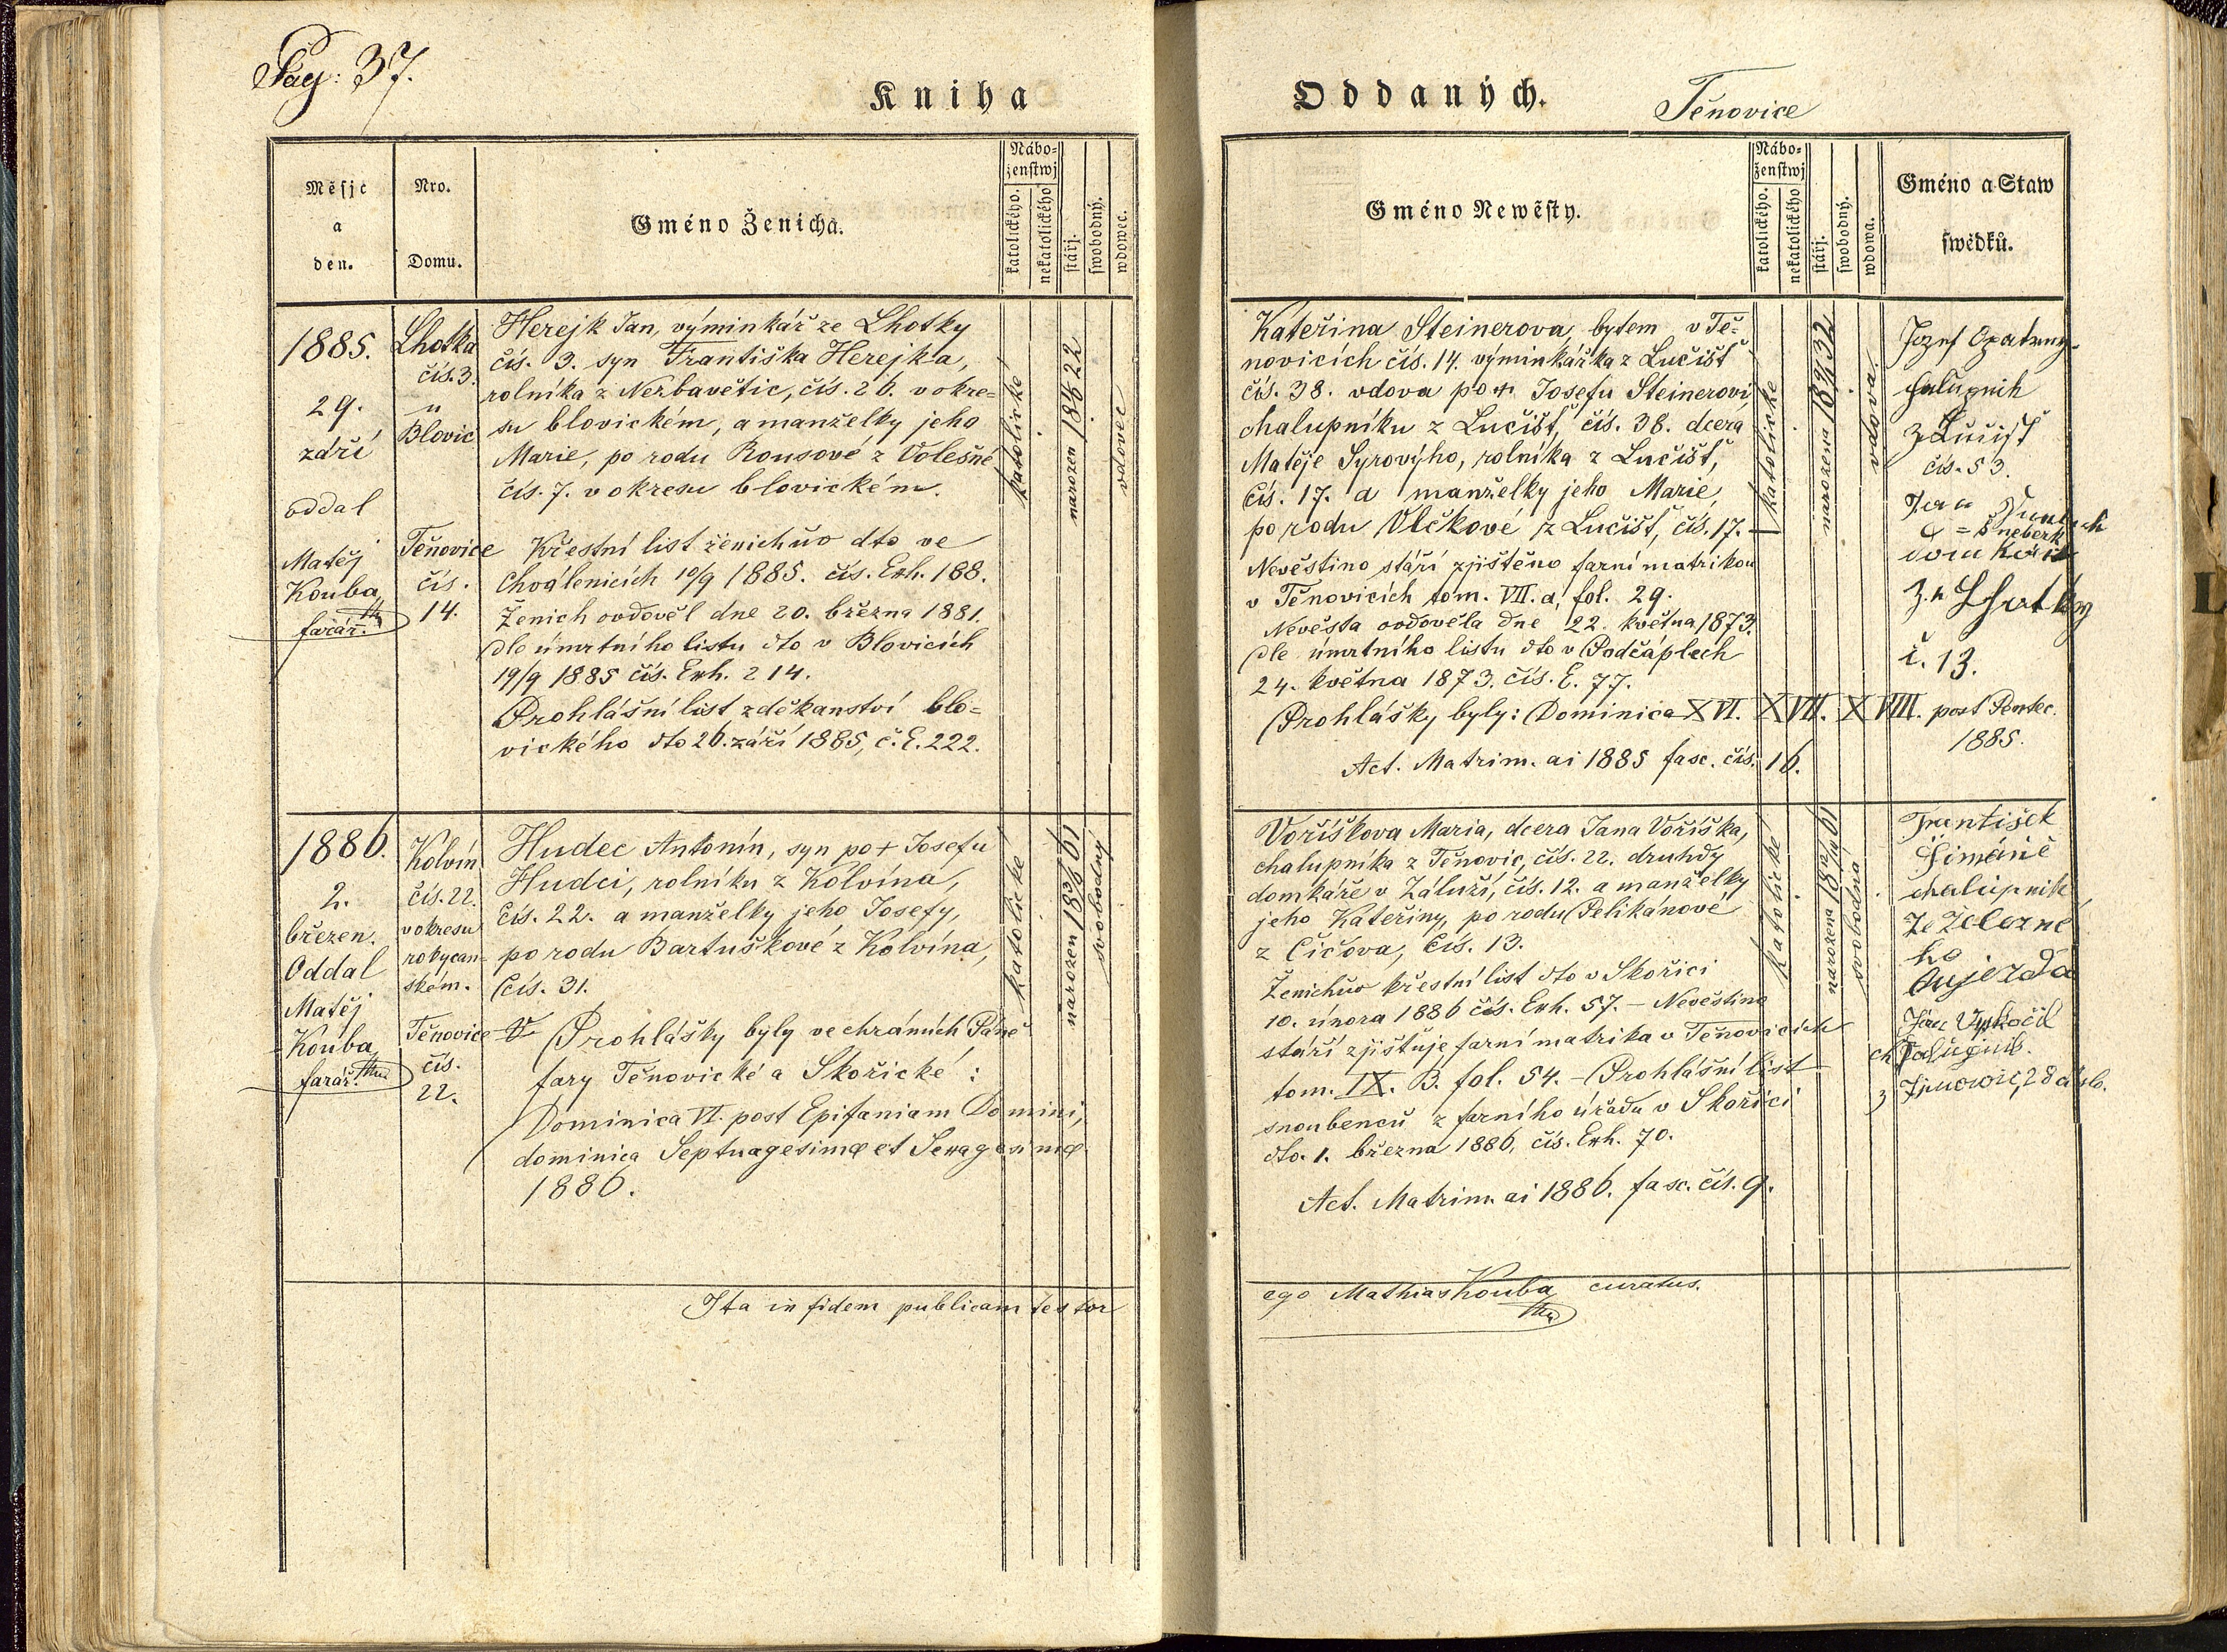 Pag: 37.
Kniha
Oddaných.
Těnovice
Měsjc
a
den.
Nro.
Domu.
Gméno Ženicha.
Nábo=
ženstwj
katolického.
nekatolického
stářj.
swobodný.
wdowec.
Gméno Newěsty.
Nábo=
ženstwj
katolického.
nekatolického
stářj.
swobodný.
wdowa.
Gméno a Staw
swědků.
1885.
29.
září
oddal
Matěj
Kouba,
farář.
Lhotka
čís. 3.
u
Blovic
Těňovice
čís.
14.
Herejk Jan, výminkář ze Lhotky
čís. 3. syn Františka Herejka,
rolníka z Nezbavětic, čís. 26. v okre=
su blovickém, a manželky jeho
Marie, po rodu Rousové z Volešné
čís. 7. v okresu blovickém.
Křestní list ženichův dto ve
Chválenicích 10/9 1885. čís. Exh. 188.
Ženich ovdověl dne 20. března 1881.
dle úmrtního listu dto v Blovicích
19/9 1885 čís. Exh. 214.
Prohlášní list z děkanství blo=
vického dto 26. září 1885, č. E. 222.
katolické
narozen
22
vdovec
Kateřina Steinerova, bytem v Tě=
novicích čís. 14. výminkářka z Lučišť
čís. 38. vdova po + Josefu Steinerovi
chalupníku z Lučišť, čís. 38. dcera
Matěje Syrovýho, rolníka z Lučišť,
čís. 17. a manželky jeho Marie,
po rodu Vlčkové z Lučišť, čís. 17.
Nevěstino stáří zjištěno farní matrikou
v Těnovicích tom. VII. a, fol. 29.
Nevěsta ovdověla dne 22. května 1873.
dle úmrtního listu dto v Podčáplech
24. května 1873. čís. E. 77.
Prohlášky byly: Dominica XVI. XVII. XVIII. post Pentec.
1885.
Act. Matrim. ai 1885 fasc. čís. 16.
katolické
narozena
32
vdova
Jozef Opatrny
halupnik
z Lučišť
čís. 53.
Jan
domkář
ze Lhotky
č. 13.
1886.
2.
březen.
Oddal
Matěj
Kouba
farář.
Kolvín
čís. 22.
v okresu
rokycan=
ském.
Těňovice
čís.
22.
Hudec Antonín, syn po + Josefu
Hudci, rolníku z Kolvína,
čís. 22. a manželky jeho Josefy,
po rodu Bartuškové z Kolvína,
čís. 31.
Prohlášky byly ve chrámích Páně
fary Těnovické a Skořické:
Dominica VI. post Epifaniam Domini,
dominica Septuagesimæ et Sexagesimæ
1886.
katolické
narozen
61
svobodný
Voříškova Maria, dcera Jana Voříška,
chalupníka z Těnovic, čís. 22. druhdy
domkáře v Záluží, čís. 12. a manželky
jeho Kateřiny, po rodu Pelikánové
z Číčova, čís. 13.
Ženichův křestní list dto v Skořici
10. února 1886 čís. Exh. 57. – Nevěstino
stáří zjišťuje farní matrika v Těňovicích
tom. IX. B. fol. 54. – Prohlášní list
snoubenců z farního úřadu v Skořici
dto. 1. března 1886, čís. Exh. 70.
Act. Matrim. ai 1886. fasc. čís. 9.
katolické
narozena
61
svobodná
František
Šimáně
chalupnik
ze železné
ho
Oujezda
Jan Vyskočil
chalupnik.
z 28
Ita in fidem publicam testor
ego Mathias Kouba curatus.